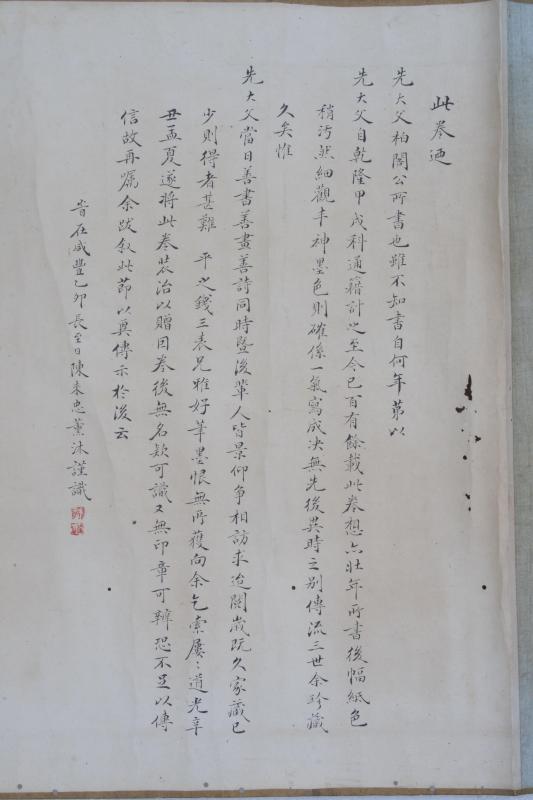 此卷迺
先大父柏閣公所書也雖不知書自何年第以
先大父自乾隆甲戌科通籍計之至今已百有餘載此卷想亦壯年所書後幅紙色
稍污然細觀丰神墨色則確係一氣寫成决無先後異時之别傳流三世余珍藏
久矣惟
先大父當日善書善畫善詩同時暨後輩人皆景仰争相訪求迨閱歲既久家藏已
少則得者甚難 平之錢三表兄雅好筆墨恨無所獲向余乞索屢〻道光辛
丑孟夏遂將此卷裝治以贈因卷後無名款可識又無印章可辨恐不足以傳
信故再囑余跋叙此節以冀傳示於後云
旹在咸豐乙卯長至日陳來忠薰沐謹識